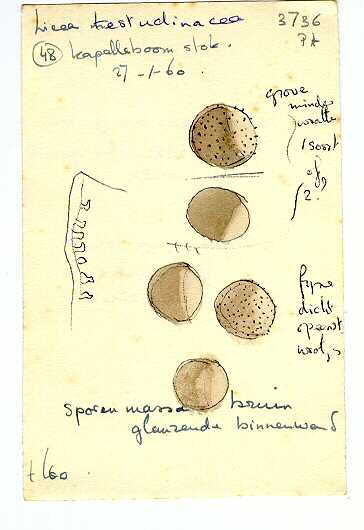 Licea testudinacea
3736
48 kapelleboom stok.
PA
27-1-60.
grove
minder
wratten
1 soort
of
2.
fijne
dicht
opeenst
Sporen massa bruin
glanzende binnenwand
t 60.